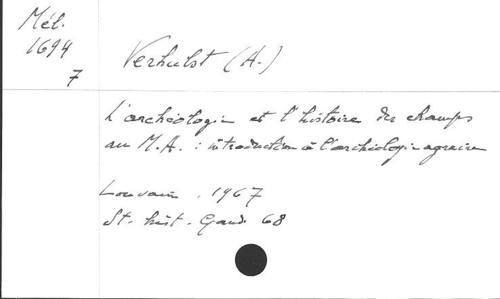 Mél.
1694
7
Verhulst (A.)
L'archéologie et l'histoire des champs
au M.A. : introduction à l'archéologie agraire
Louvain, 1967
St. hist. Gand. 68